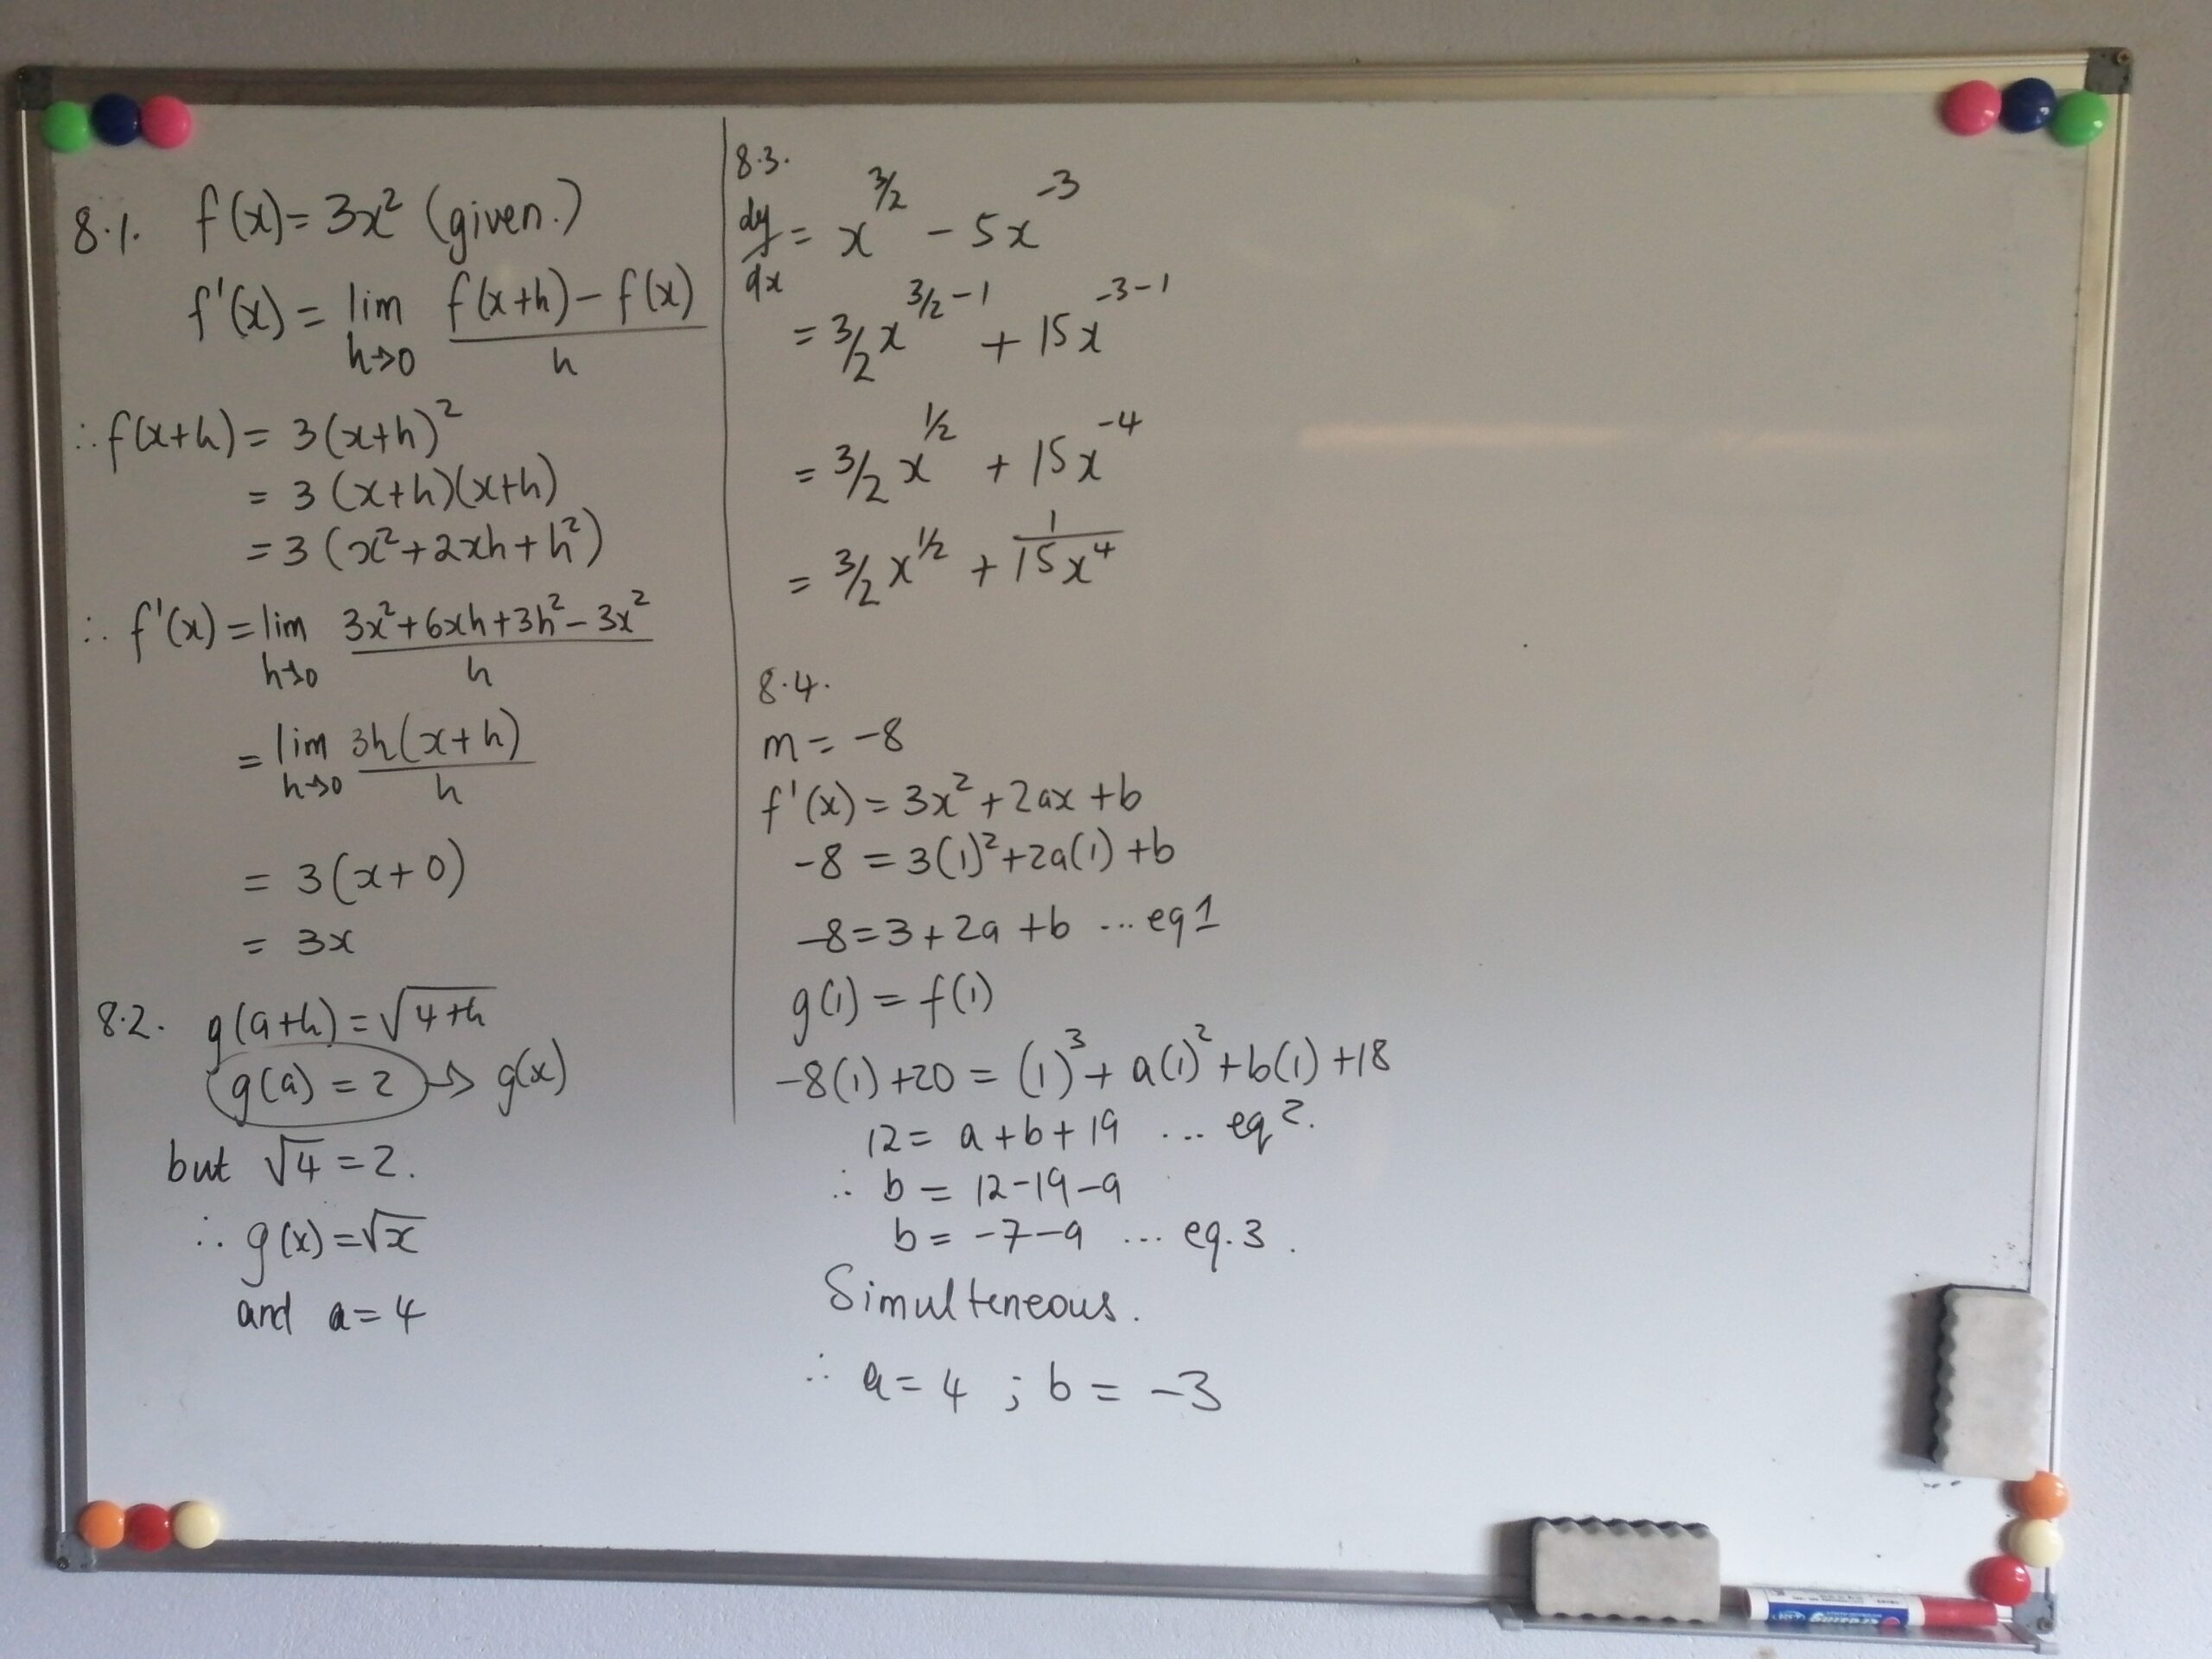 8.1. f(x) = 3x² (given.)
f'(x) = lim h→0 f(x+h) − f(x) / h
∴ f(x+h) = 3(x+h)²
= 3(x+h)(x+h)
= 3(x²+2xh+h²)
∴ f'(x) = lim h→0 3x²+6xh+3h²−3x² / h
= lim h→0 3h(x+h) / h
= 3(x+0)
= 3x
8.2. g(a+h) = √(4+h)
g(a) = 2 → g(x)
but √4 = 2.
∴ g(x) = √x
and a = 4
8.3.
dy/dx = x^(3/2) − 5x^(−3)
= 3/2 x^(3/2−1) + 15x^(−3−1)
= 3/2 x^(1/2) + 15x^(−4)
= 3/2 x^(1/2) + 1/15x⁴
8.4.
m = −8
f'(x) = 3x² + 2ax + b
−8 = 3(1)² + 2a(1) + b
−8 = 3 + 2a + b ... eq 1
g(1) = f(1)
−8(1) + 20 = (1)³ + a(1)² + b(1) + 18
12 = a + b + 19 ... eq 2.
∴ b = 12−19−a
b = −7−a ... eq. 3.
Simulteneous.
∴ a = 4 ; b = −3